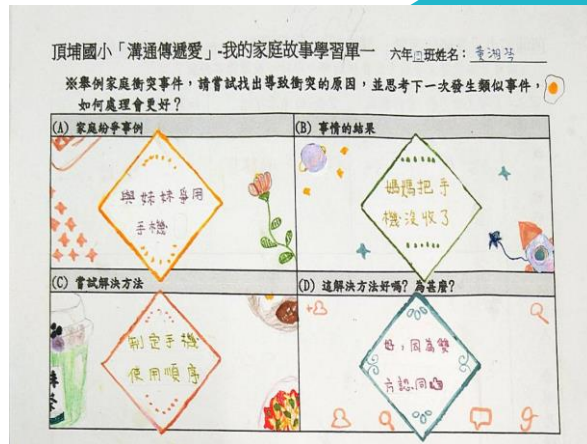 頂埔國小「溝通傳遞愛」-我的家庭故事學習單一 六年四班姓名：
※舉例家庭衝突事件，請嘗試找出導致衝突的原因，並思考下一次發生類似事件，
如何處理會更好？
(A) 家庭紛爭事例
與妹妹爭用
手機
(B) 事情的結果
媽媽把手
機沒收了
(C) 嘗試解決方法
制定手機
使用順序
(D) 這解決方法好嗎？為甚麼？
好，因為雙
方認同